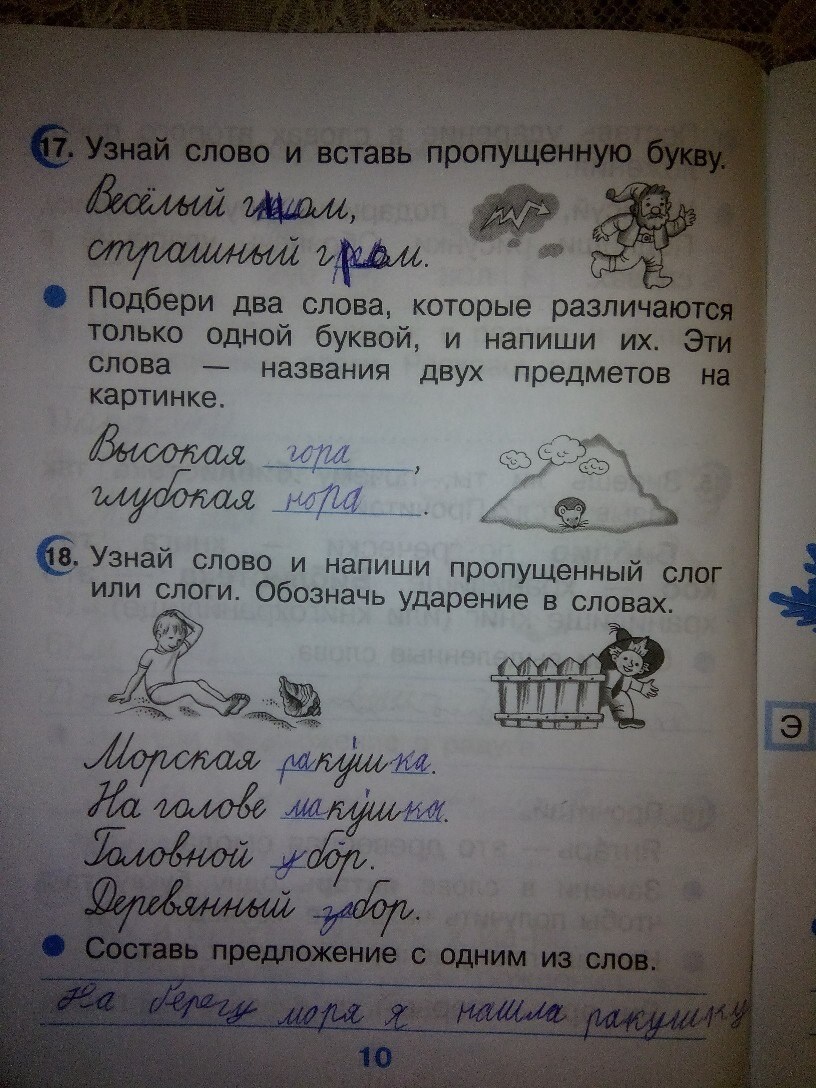 17. Узнай слово и вставь пропущенную букву.
Весёлый гном,
страшный гром.
Подбери два слова, которые различаются
только одной буквой, и напиши их. Эти
слова — названия двух предметов на
картинке.
Высокая гора,
глубокая нора.
18. Узнай слово и напиши пропущенный слог
или слоги. Обозначь ударение в словах.
Морская раку́шка.
На голове маку́шка.
Головной убо́р.
Деревянный забор.
Составь предложение с одним из слов.
На берегу моря я нашла ракушку
10
Э